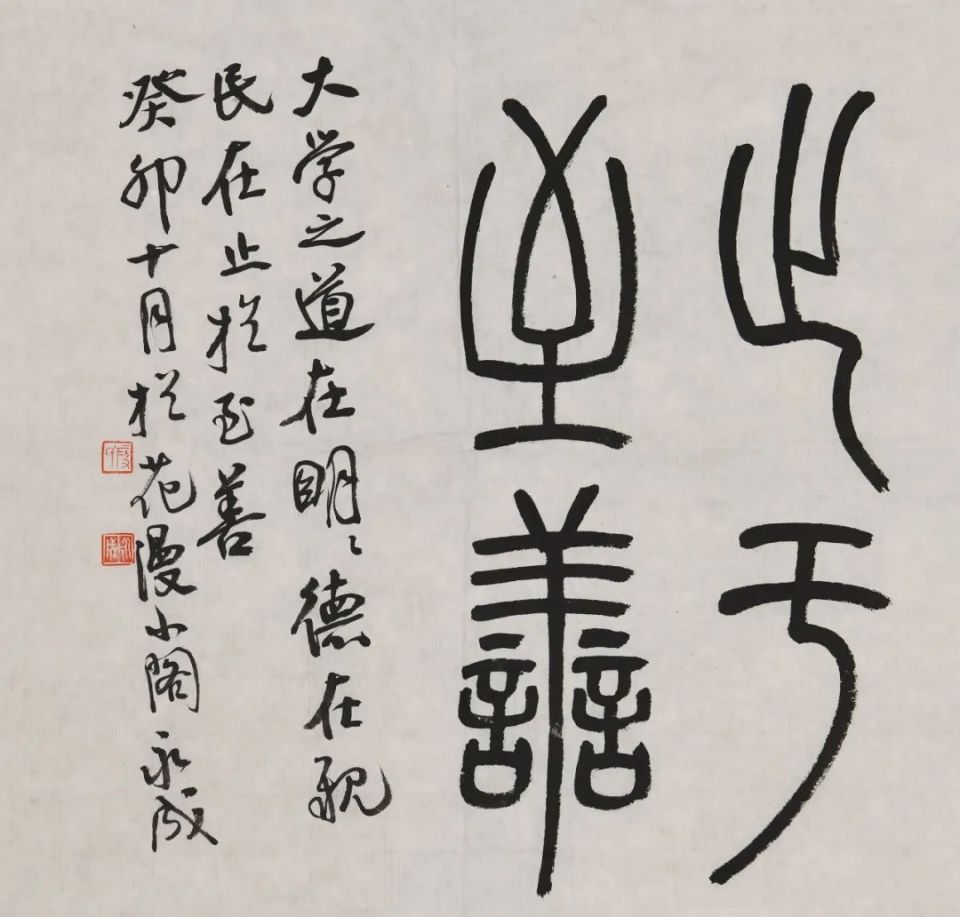 止于
至善
大学之道在明明德在亲
民在止於至善
癸卯十月於花漫小阁永成